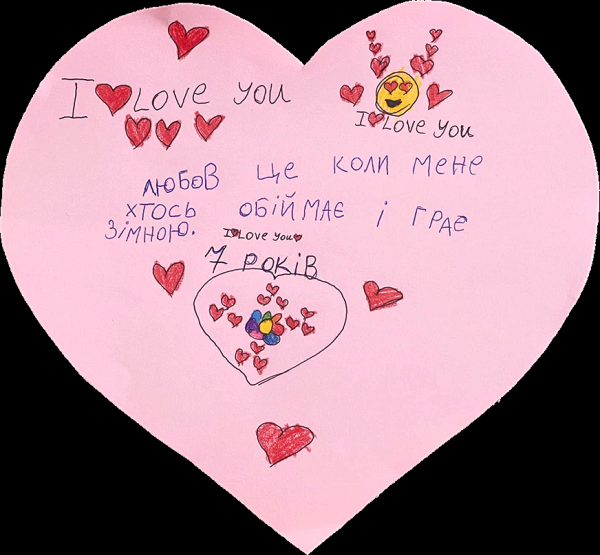 I ❤ Love you
I ❤ Love you
любов це коли мене
хтось обіймає і грає
зімною.
I ❤ Love you ❤
7 років